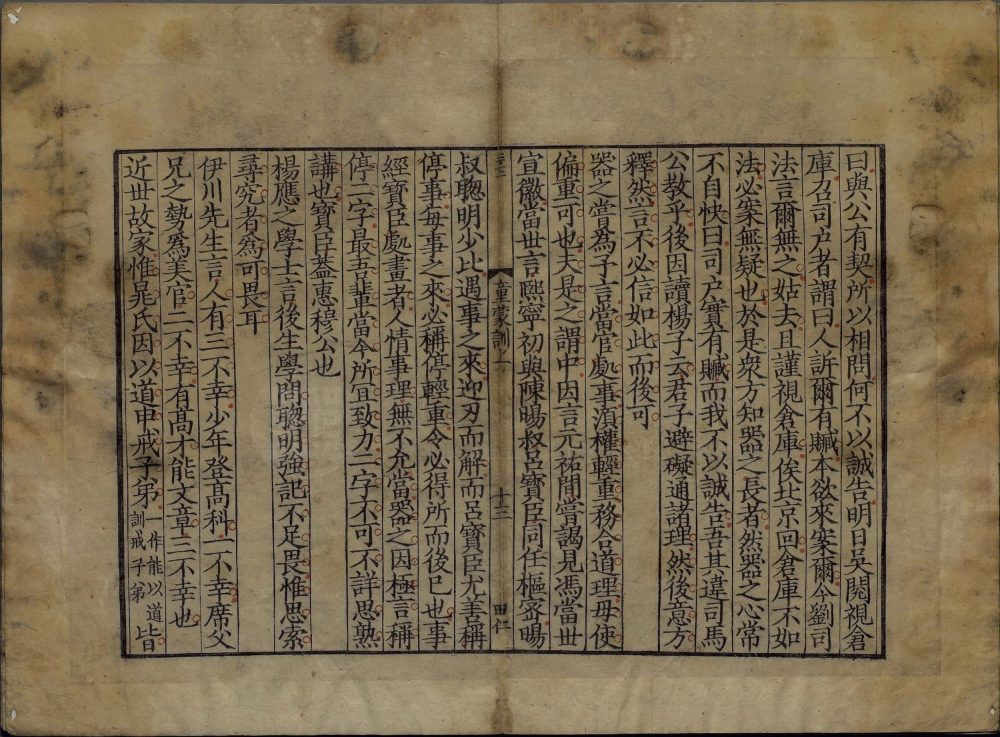 曰與公有契所以相問何不以誠告明日吳閱視倉
庫召司戶者謂曰人訴爾有贓本欲來案爾今劉司
法言爾無之姑去且謹視倉庫俟北京回倉庫不如
法必案無疑也於是衆方知器之長者然器之心常
不自快曰司戶實有贓而我不以誠告吾其違司馬
公教乎後因讀楊子云君子避礙通諸理然後意方
釋然言不必信如此而後可
器之嘗爲予言當官處事湏權輕重務合道理毋使
偏重可也夫是之謂中因言元祐閒嘗謁見馮當世
宣徽當世言熙寧初與陳暘叔呂寶臣同任樞密暘
童蒙訓上
十三
田仁
叔聦明少比遇事之來迎刃而解而呂寶臣尤善稱
停事每事之來必稱停輕重令必得所而後已也事
經寶臣處畫者人情事理無不允當器之因極言稱
停二字最吾輩當今所宜致力二字不可不詳思熟
講也寶臣蓋惠穆公也
楊應之學士言後生學問聦明強記不足畏惟思索
尋究者爲可畏耳
伊川先生言人有三不幸少年登髙科一不幸席父
兄之勢爲美官二不幸有髙才能文章三不幸也
近世故家惟晁氏因以道申戒子弟一作能以道訓戒子弟皆